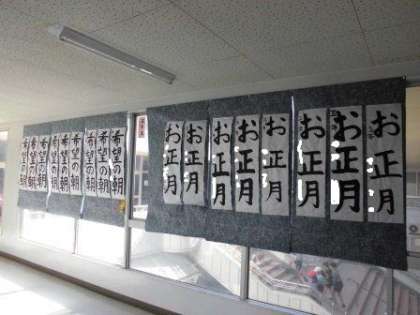 お正月
お正月
お正月
お正月
お正月
お正月
お正月
お正月
希望の朝
希望の朝
希望の朝
希望の朝
希望の朝
希望の朝
希望の朝
希望の朝